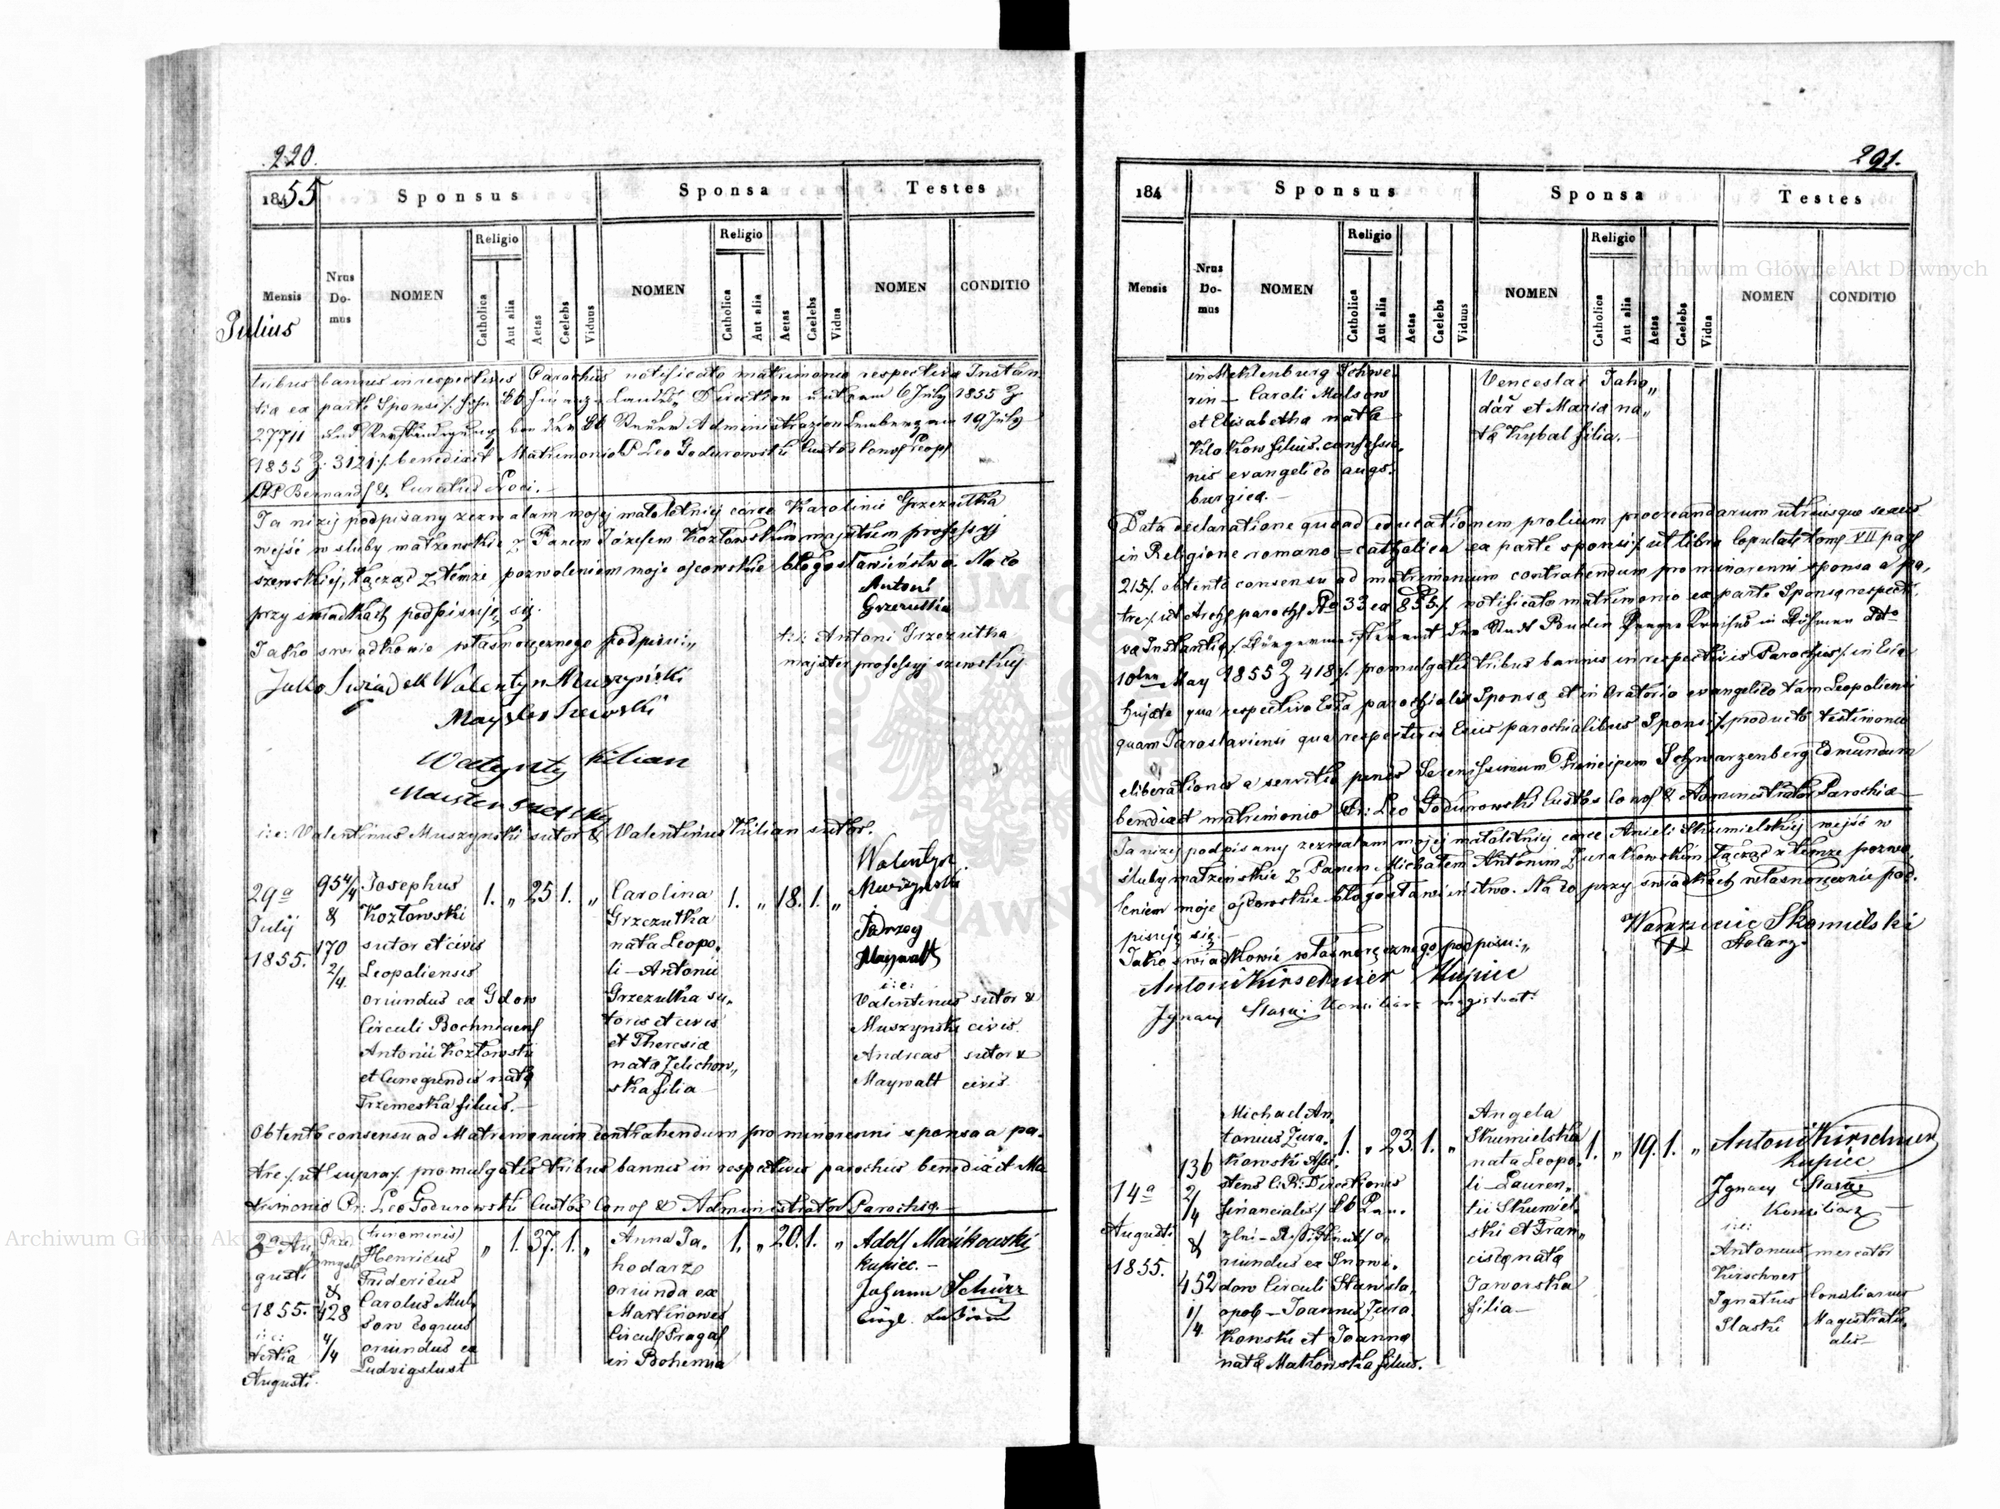 220.
1855
Sponsus
Sponsa
Testes
Mensis
Nrus Do- mus
NOMEN
Religio
Catholica
Aut alia
Aetas
Caelebs
Viduus
NOMEN
Religio
Catholica
Aut alia
Aetas
Caelebs
Vidua
NOMEN
CONDITIO
Julius
tribus bannis in respectivis Parochiis notificato matrimonio respectiva Instan
tia ex parte Sponsi 6 July 1855 Z.
27711 Administrazion Lemberg 19 July
1855 Z. 3121/. benedixit Matrimonio P Leo Godurowski Custos Conv Leop
PP Bernard & Curatus Loci.
Ja niżej podpisany zezwalam mojej małoletniej córce Karolinie Grzezutka
wejść w śluby małżeńskie z Panem Józefem Kozłowskim majstrem profesyj
szewskiej, łącząc z temże pozwoleniem moje ojcowskie błogosławieństwo. Na co
przy świadkach podpisuję się.
Antoni
Grzezutka
Jako świadkowie własnoręcznego podpisu:„
t: j: Antoni Grzezutka
majster profesyj szewskiej
Jako Swiadek Walentyn Muszyński
Mayster Szewski
Walenty Kilian
i: e: Valentinus Muszynski sutor & Valentinus Kilian sutor.
29a
July
1855.
954/4
&
170
2/4.
Josephus
Kozłowski
sutor et civis
Leopoliensis
oriundus ex Gdow
Circuli Bochniens
Antonii Kozłowski
et Cunegundis natę
Trzemeska filius.
1. „ 25 1. „
Carolina
Grzezutka
nata Leopo,
li — Antonii
Grzezutka su,
toris et civis
et Theresiæ
nata Zelichow„
ska filia
1. „ 18. 1. „
Walentyn
Muszynski
Jędrzey
Maywalt
i: e:
Valentinus sutor &
Muszynski civis
Andreas sutor &
Maywalt civis
Obtento consensu ad Matrimonium contrahendum pro minorenni sponsa a pa-
tre/. ut supra/. promulgatis tribus bannis in respectivis parochiis benedixit Ma
trimonio Pr: Leo Godurowski Custos Conv & Administrator Parochię.
3a Au,
gusti
1855.
i: e:
tertia
Augusti.
Prze
mysl
&
428
4/4
Henricus
Fridericus
Carolus Mul,
sow coquus
oriundus ex
Ludvigslust
„ 1. 37. 1. „
Anna Ja,
hodarz
oriunda ex
Martinowes
Circul Pragas
in Bohemia
1. „ 20. 1. „
Adolf Mańkowski
kupiec.
Johann Schürz
291.
184
Sponsus
Sponsa
Testes
Mensis
Nrus Do- mus
NOMEN
Religio
Catholica
Aut alia
Aetas
Caelebs
Viduus
NOMEN
Religio
Catholica
Aut alia
Aetas
Caelebs
Vidua
NOMEN
CONDITIO
in Meklenburg Schwe-
rin — Caroli Mulsow
et Elisabetha nata
Klokow filius. confessio,
nis evangelico augs-
burgica.
Venceslai Jaho„
dář et Maria na„
ta Kybal filia.
Data declaratione quoad educationem prolium procreandarum utriusque sexus
in Religione romano = catholica ex parte sponsi/. ut libro Copulat Tom VII pag
215/. obtento consensu ad matrimonium contrahendum pro minorenni sponsa a pa,
tre/. ut Arch paroch No 33 ex 855/. notificato matrimonio ex parte Sponsę respecti
va Instantia/. Bürgermeisteramt der Stadt Budin Prager Kreises in Böhmen dto
10ten May 1855 Z 418/. promulgatis tribus bannis in respectivis Parochiis/. in Ecła
hujate qua respectiva Ecła parochialis Sponsę et in Oratorio evangelico tam Leopoliensi
quam Jaroslaviensi qua respectivis Eciis parochialibus Sponsi/. producto testimonio
eliberationis a servitio penes Serenissimum Principem Schwarzenberg Edmundum
benedixit matrimonio Pr: Leo Godurowski Custos Conv & Administrator Parochię
Ja niżej podpisany zezwalam mojej małoletniej córce Anieli Skumielskiej wejść w
śluby małżeńskie z Panem Michałem Antonim Żurakowskim łącząc z temże pozwo,
leniem moje ojcowskie błogosławieństwo. Na co przy świadkach własnoręcznie pod-
pisuję się
Wawrzeniec Skomielski
Stolarz
Jako świadkowie własnoręcznego podpisu:„
Antoni Kirschner Kupiec
Ignacy Slaski Konsiliarz magistrat:
14a
Augusti
1855.
136
2/4
&
452
1/4
Michael An,
tonius Zura,
kowski Assi,
stens C: R: Directionis
financialis
oriundus ex Snowi,
dow Circuli Stanisla,
opol — Joannis Zura
kowski et Joanna
natę Makowska filius.
1. „ 23. 1. „
Angela
Skumielska
nata Leopo,
li — Lauren,
tii Skumiel
ski et Fran„
ciscę natę
Jaworska
filia
1. „ 19. 1. „
Antoni Kirschner
kupiec
Ignacy Slaski
Konsiliarz
i: e:
Antonius mercator
Kirschner
Ignatius Consiliarius
Slaski Magistratu,
alis
Archiwum Główne Akt Dawnych
Archiwum Główne Akt Dawnych